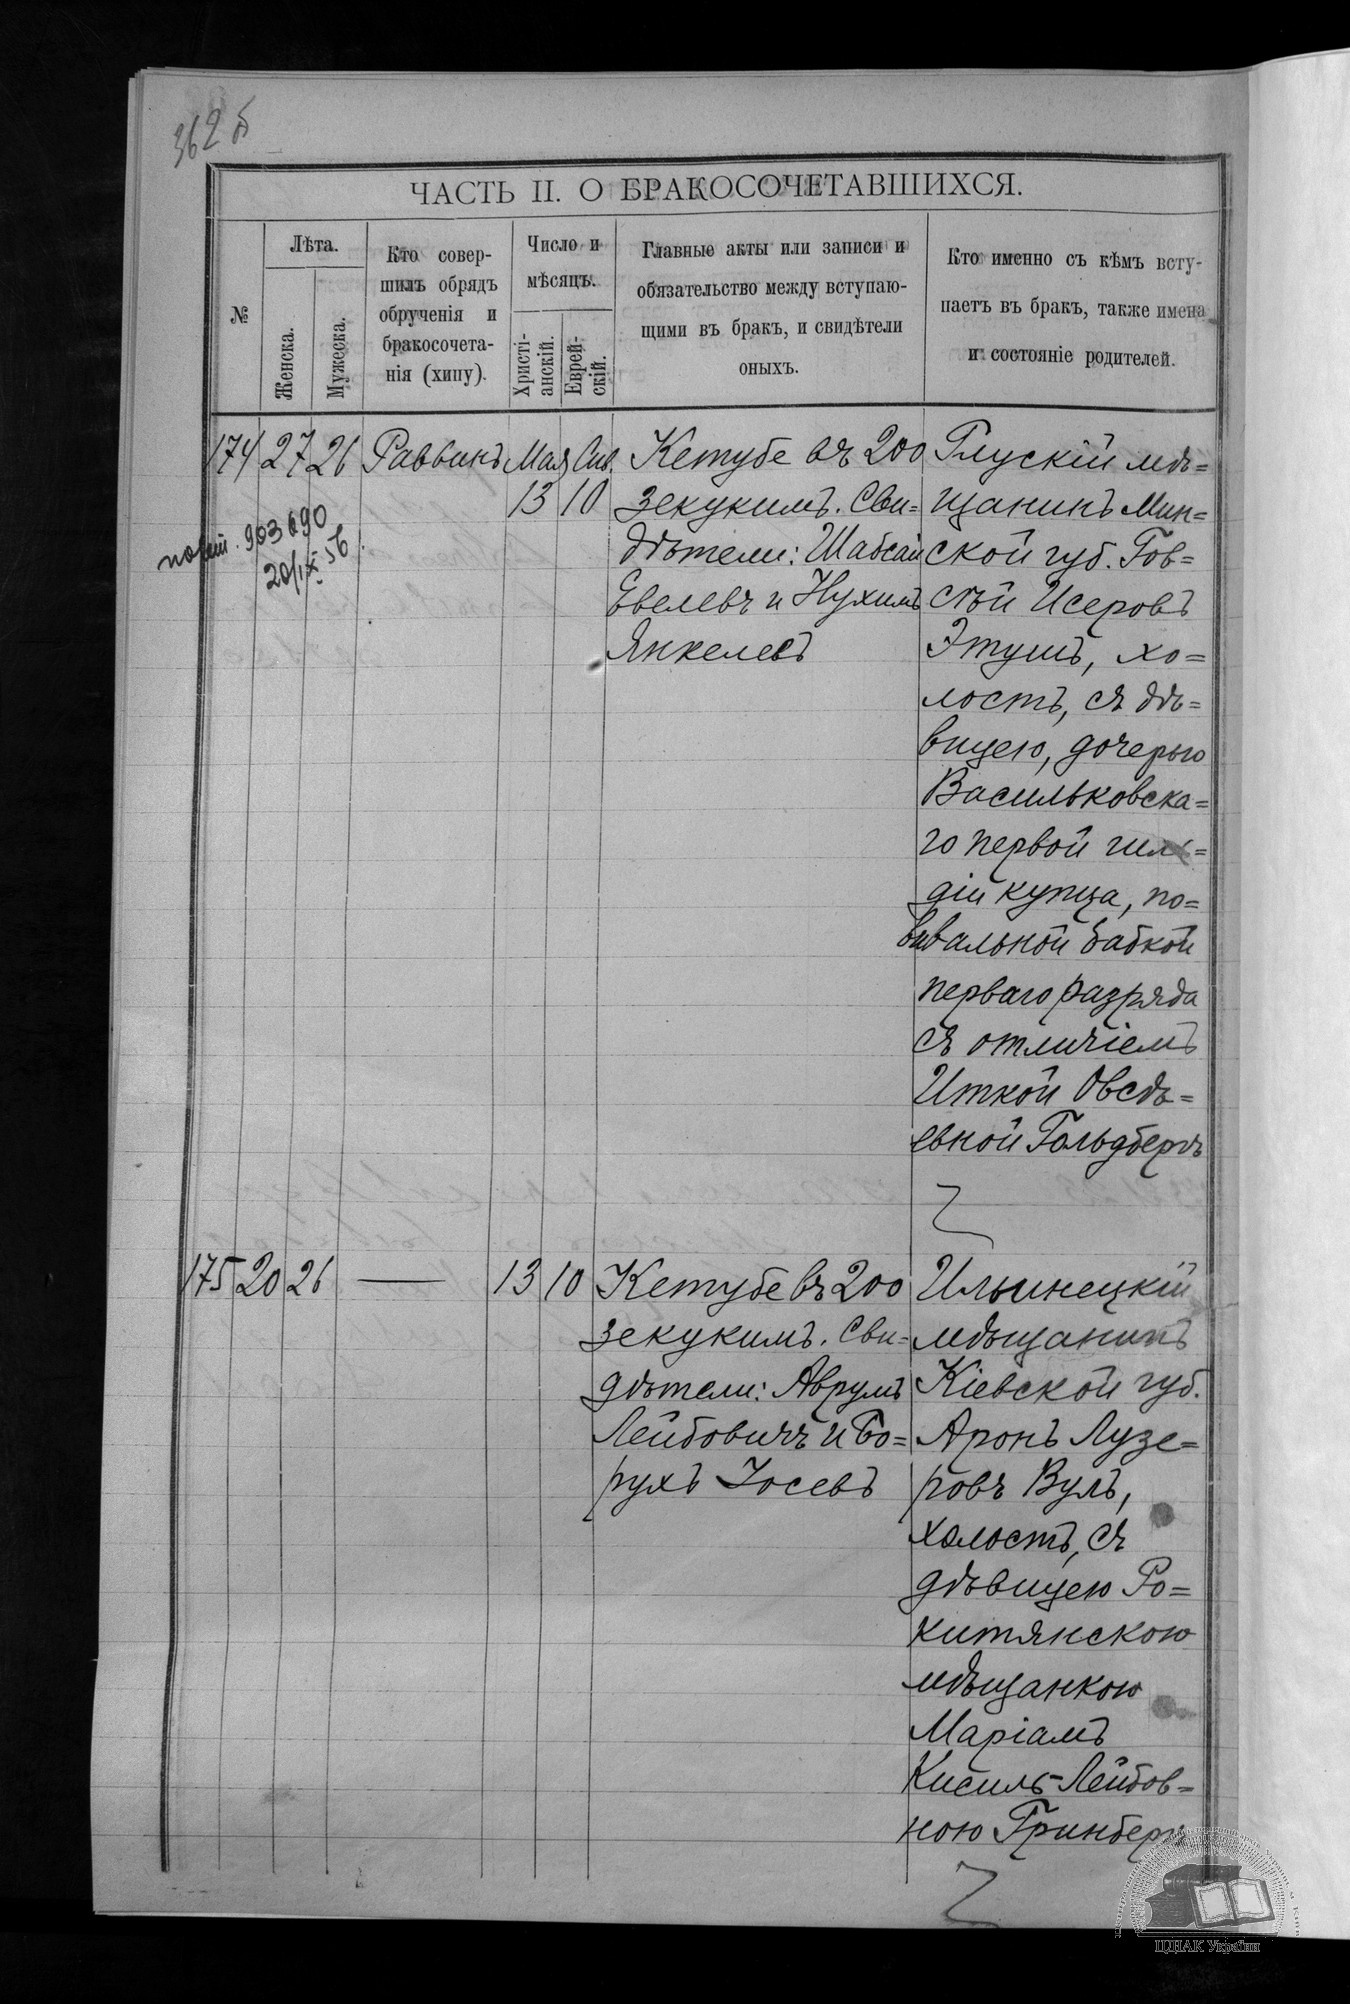 362 б
ЧАСТЬ II. О БРАКОСОЧЕТАВШИХСЯ.
№
Лѣта.
Женска.
Мужеска.
Кто совер-
шилъ обрядъ
обрученія и
бракосочета-
нія (хипу).
Число и
мѣсяцъ.
Христі-
анскій.
Еврей-
скій.
Главные акты или записи и
обязательство между вступаю-
щими въ бракъ, и свидѣтели
оныхъ.
Кто именно съ кѣмъ всту-
паетъ въ бракъ, также имена
и состояніе родителей.
174 27 26 Раввинъ Мая Сив.
13 10
903690
20/IX 56
Кетубе въ 200
зекукимъ. Сви-
дѣтели: Шабсай
Евелевъ и Нухимъ
Янкелевъ
Глускій мѣ=
щанинъ Мин=
ской губ. Гов=
сѣй Исеровъ
Этушъ, хо=
лостъ, съ дѣ=
вицею, дочерью
Васильковска=
го первой гиль=
діи купца, по=
вивальной бабкой
перваго разряда
съ отличіемъ
Иткой Овсѣ=
евной Гольдбергъ
175 20 26 — 13 10
Кетубе въ 200
зекукимъ. Сви=
дѣтели: Аврумъ
Лейбовичъ и Бо=
рухъ Іосевъ
Ильинецкій
мѣщанинъ
Кіевской губ.
Аронъ Лузе=
ровъ Вулъ,
холостъ, съ
дѣвицею Ро=
китянскою
мѣщанкою
Маріамъ
Кисиль-Лейбов=
ною Гринбергъ
ЦДІАК України